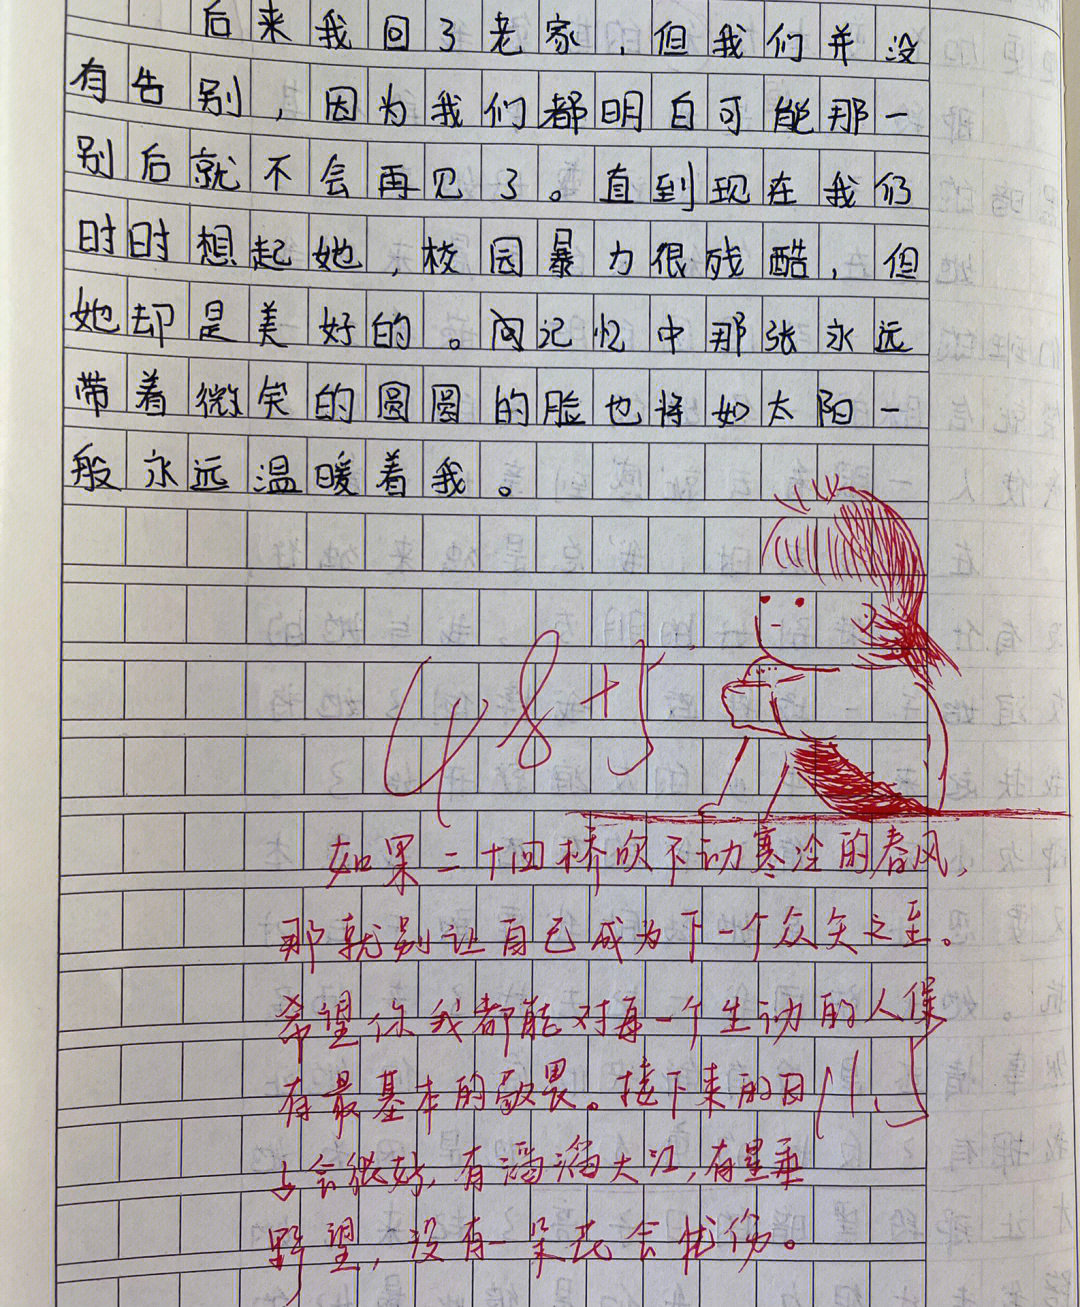 后来我回了老家，但我们并没
有告别，因为我们都明白可能那一
别后就不会再见了。直到现在我仍
时时想起她，校园暴力很残酷，但
她却是美好的。记忆中那张永远
带着微笑的圆圆的脸也将如太阳一
般永远温暖着我。
48+5
如果二十回桥吹不动寒冷的春风，
那就别让自己成为下一个众矢之至。
希望你我都能对每一个生动的人保
有最基本的敬畏。接下来的日
会很好，有滔滔大江，有星垂
野望，没有一朵花会忧伤。